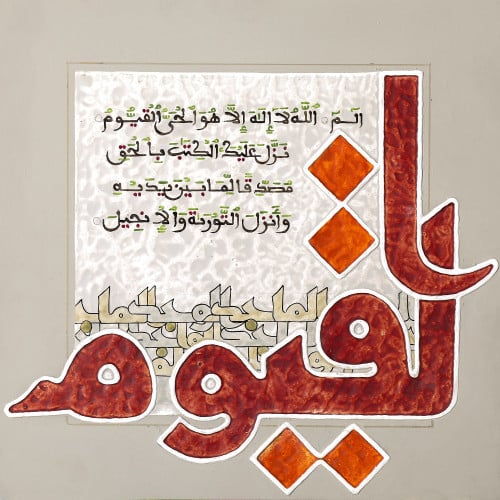 الٓمٓ ۝ ٱللَّهُ لَآ إِلَٰهَ إِلَّا هُوَ ٱلْحَىُّ ٱلْقَيُّومُ ۝
نَزَّلَ عَلَيْكَ ٱلْكِتَٰبَ بِٱلْحَقِّ
مُصَدِّقًا لِّمَا بَيْنَ يَدَيْهِ
وَأَنزَلَ ٱلتَّوْرَىٰةَ وَٱلْإِنجِيلَ ۝
القيوم